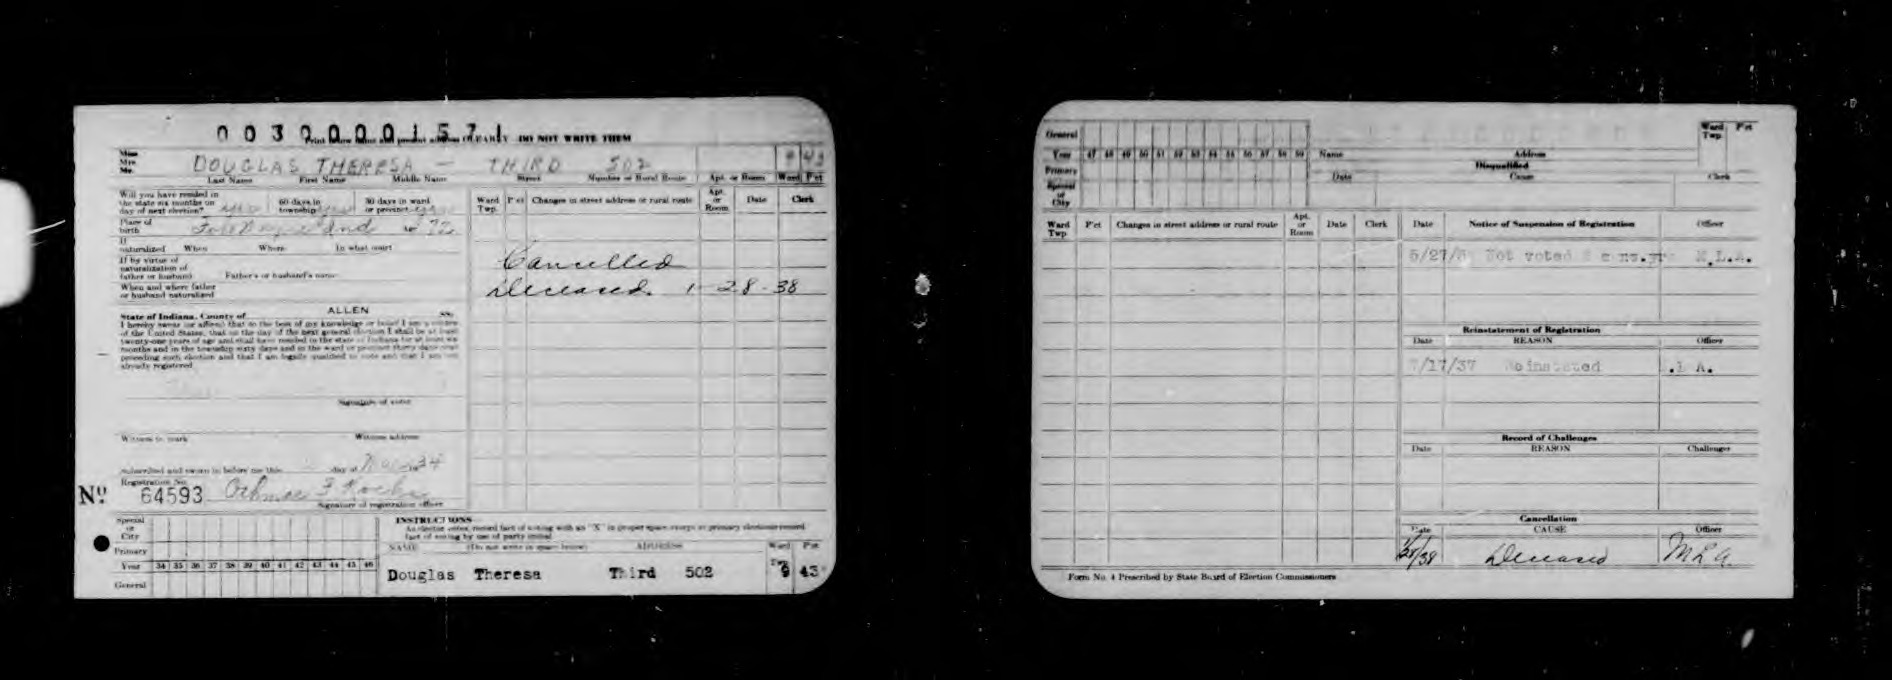 00300001571
Print below name and present address CLEARLY DO NOT WRITE THEM
Miss
Mrs.
Mr.
DOUGLAS THERESA — THIRD 502 9 43
Last Name First Name Middle Name Street Number or Rural Route Apt. or Room Ward Pct
Will you have resided in
the state six months on
day of next election? yes
60 days in
township
30 days in ward
or precinct
Ward
Twp.
Pct
Changes in street address or rural route
Apt.
or
Room
Date
Clerk
Place of
birth Ft Wayne Ind 72
If
naturalized When Where In what court
If by virtue of
naturalization of
father or husband Father's or husband's name
When and where father
or husband naturalized
Cancelled
Deceased. 1-28-38
State of Indiana, County of ALLEN SS:
I hereby swear (or affirm) that to the best of my knowledge or belief I am a citizen
of the United States, that on the day of the next general election I shall be at least
twenty-one years of age and shall have resided in the state of Indiana for at least six
months and in the township sixty days and in the ward or precinct thirty days next
preceding such election and that I am legally qualified to vote and that I am not
already registered
Signature of voter
Witness to mark Witness address
Subscribed and sworn to before me this day of 34
Registration No.
No 64593
Signature of registration officer
Special
or
City
Primary
Year 34 35 36 37 38 39 40 41 42 43 44 45 46
General
INSTRUCTIONS—
An elector votes, record fact of voting with an "X" in proper space except at primary elections record
fact of voting by use of party initial
NAME (Do not write in space below) ADDRESS Ward Twp. Pct
Douglas Theresa Third 502 9 43
General
Year 47 48 49 50 51 52 53 54 55 56 57 58 59
Primary
Special
or
City
Name Address
Ward
Twp.
Pct
Disqualified
Date Cause Clerk
Ward
Twp
Pct
Changes in street address or rural route
Apt.
or
Room
Date
Clerk
Date Notice of Suspension of Registration Officer
Not voted 2 cons.yrs M.L.A.
Reinstatement of Registration
Date REASON Officer
7/17/37 Reinstated .L A.
Record of Challenges
Date REASON Challenger
Cancellation
Date CAUSE Officer
1/28/38 Deceased M L A.
Form No. 4 Prescribed by State Board of Election Commissioners